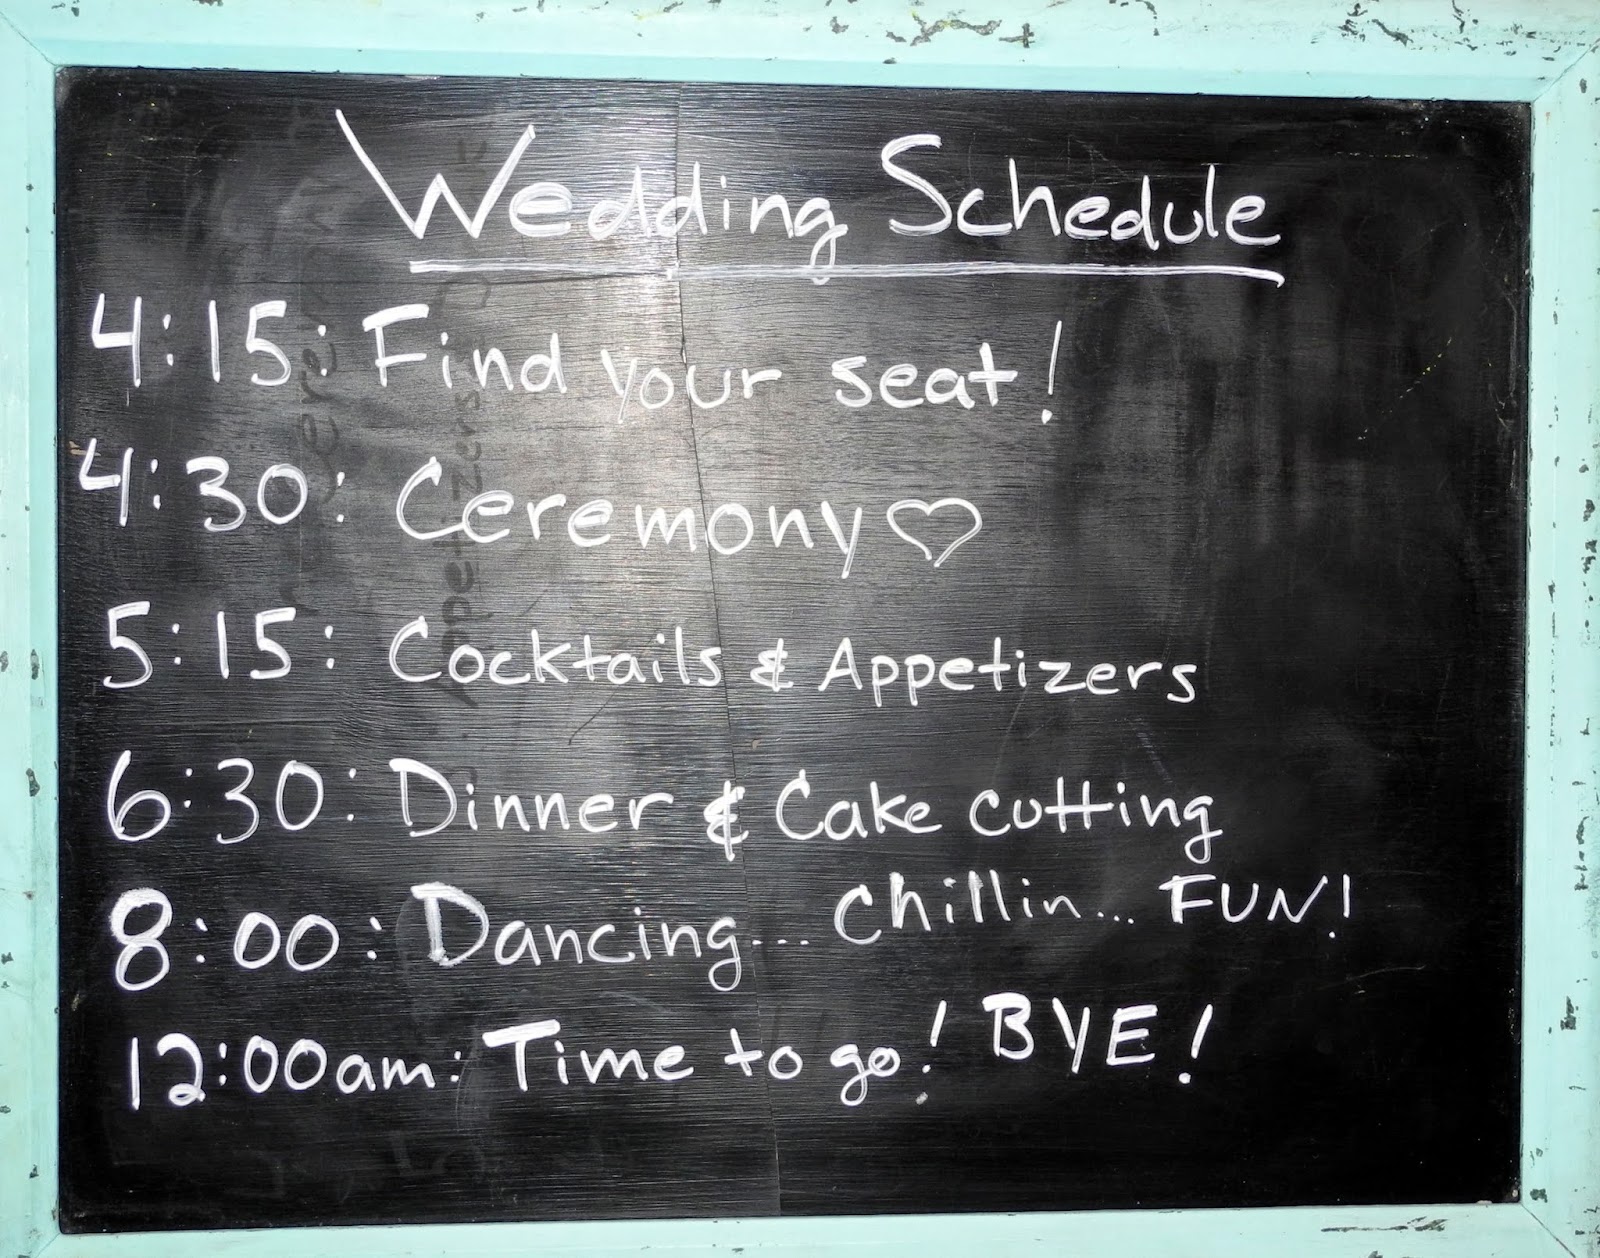 Wedding Schedule
4:15: Find your seat!
4:30: Ceremony♡
5:15: Cocktails & Appetizers
6:30: Dinner & Cake cutting
8:00: Dancing... Chillin... FUN!
12:00am: Time to go! BYE!